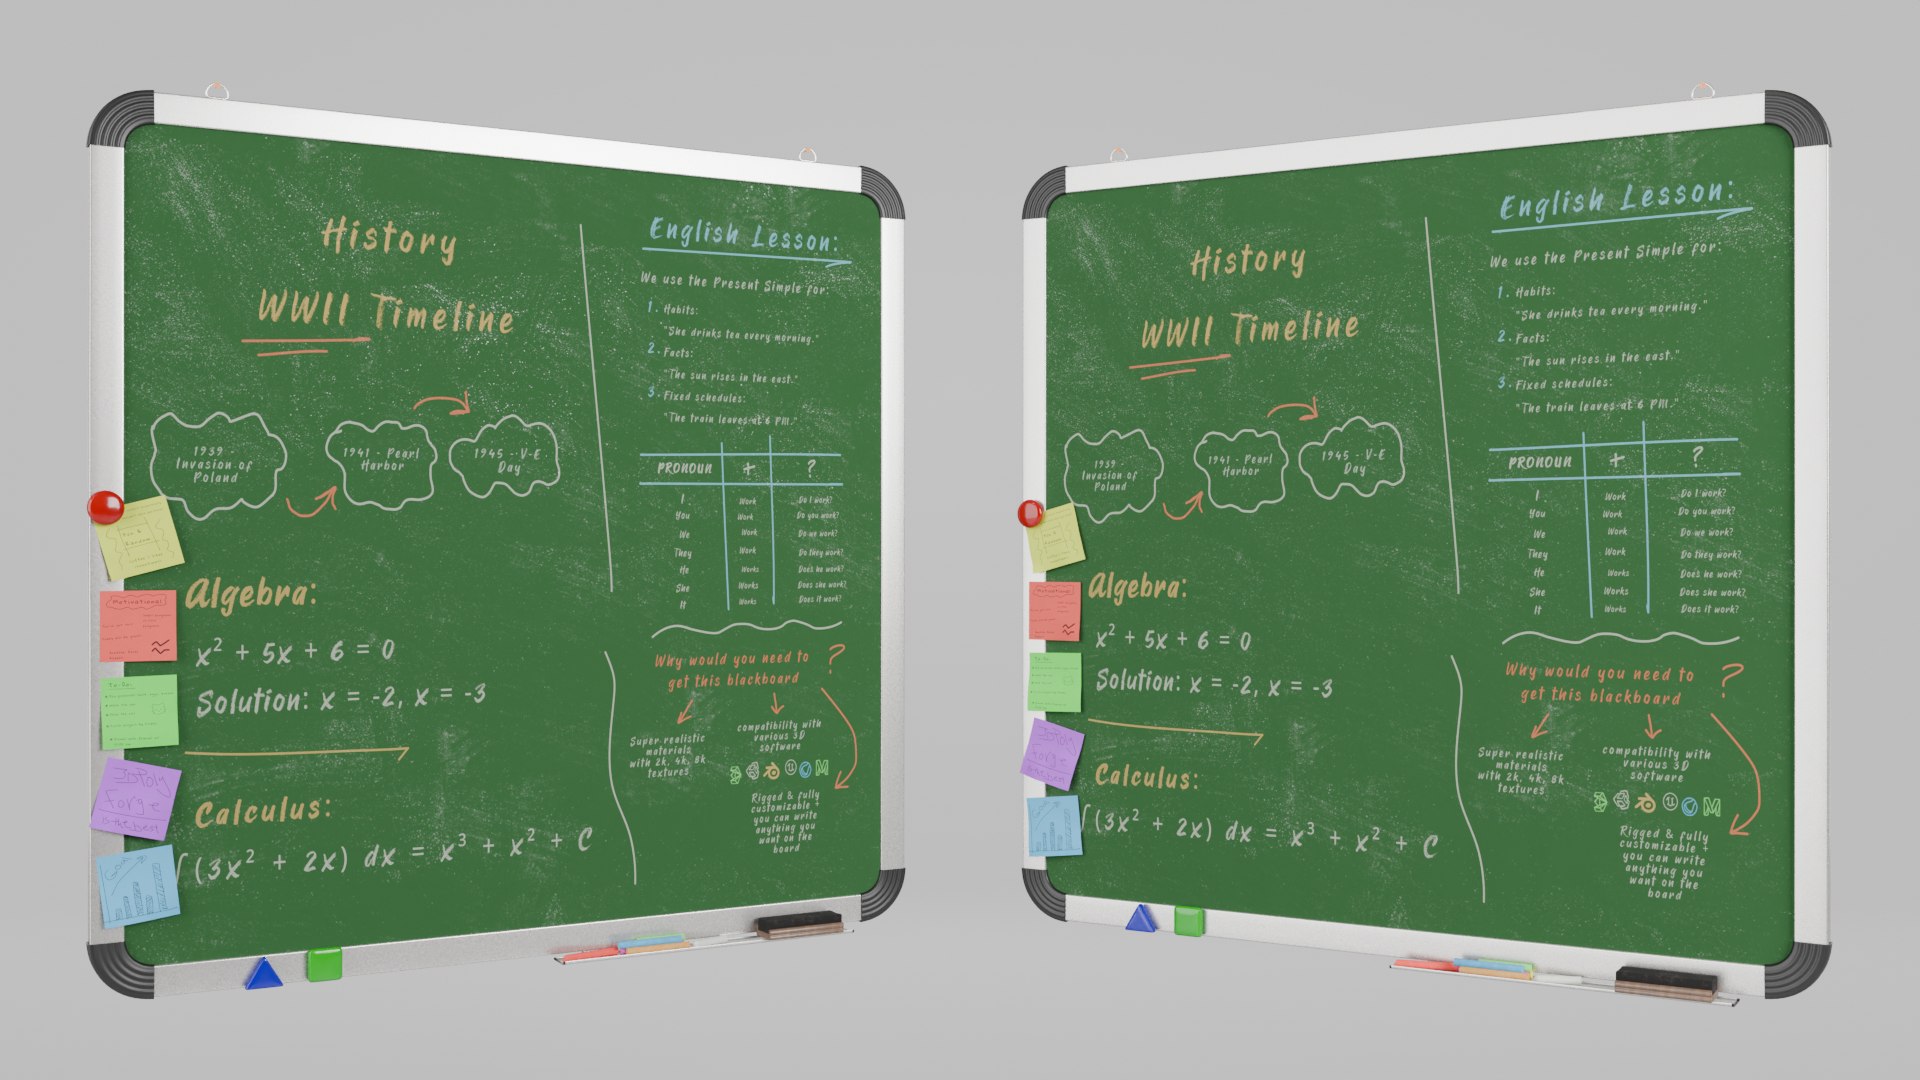 History
WWII Timeline
1939 -
Invasion of
Poland
1941 - Pearl
Harbor
1945 - V-E
Day
Algebra:
x² + 5x + 6 = 0
Solution: x = -2, x = -3
Calculus:
∫(3x² + 2x) dx = x³ + x² + C
English Lesson:
We use the Present Simple for:
1. Habits:
"She drinks tea every morning."
2. Facts:
"The sun rises in the east."
3. Fixed schedules:
"The train leaves at 6 PM."
PRONOUN + ?
I Work Do I work?
You Work Do you work?
We Work Do we work?
They Work Do they work?
He Works Does he work?
She Works Does she work?
It Works Does it work?
Why would you need to
get this blackboard ?
Super-realistic
materials
with 2k, 4k, 8k
textures
compatibility with
various 3D
software
Rigged & fully
customizable +
you can write
anything you
want on the
board
Motivational
To-Do:
3DPoly
Forge
is the best
History
WWII Timeline
1939 -
Invasion of
Poland
1941 - Pearl
Harbor
1945 - V-E
Day
Algebra:
x² + 5x + 6 = 0
Solution: x = -2, x = -3
Calculus:
∫(3x² + 2x) dx = x³ + x² + C
English Lesson:
We use the Present Simple for:
1. Habits:
"She drinks tea every morning."
2. Facts:
"The sun rises in the east."
3. Fixed schedules:
"The train leaves at 6 PM."
PRONOUN + ?
I Work Do I work?
You Work Do you work?
We Work Do we work?
They Work Do they work?
He Works Does he work?
She Works Does she work?
It Works Does it work?
Why would you need to
get this blackboard ?
Super-realistic
materials
with 2k, 4k, 8k
textures
compatibility with
various 3D
software
Rigged & fully
customizable +
you can write
anything you
want on the
board
Motivational
3DPoly
Forge
is the best